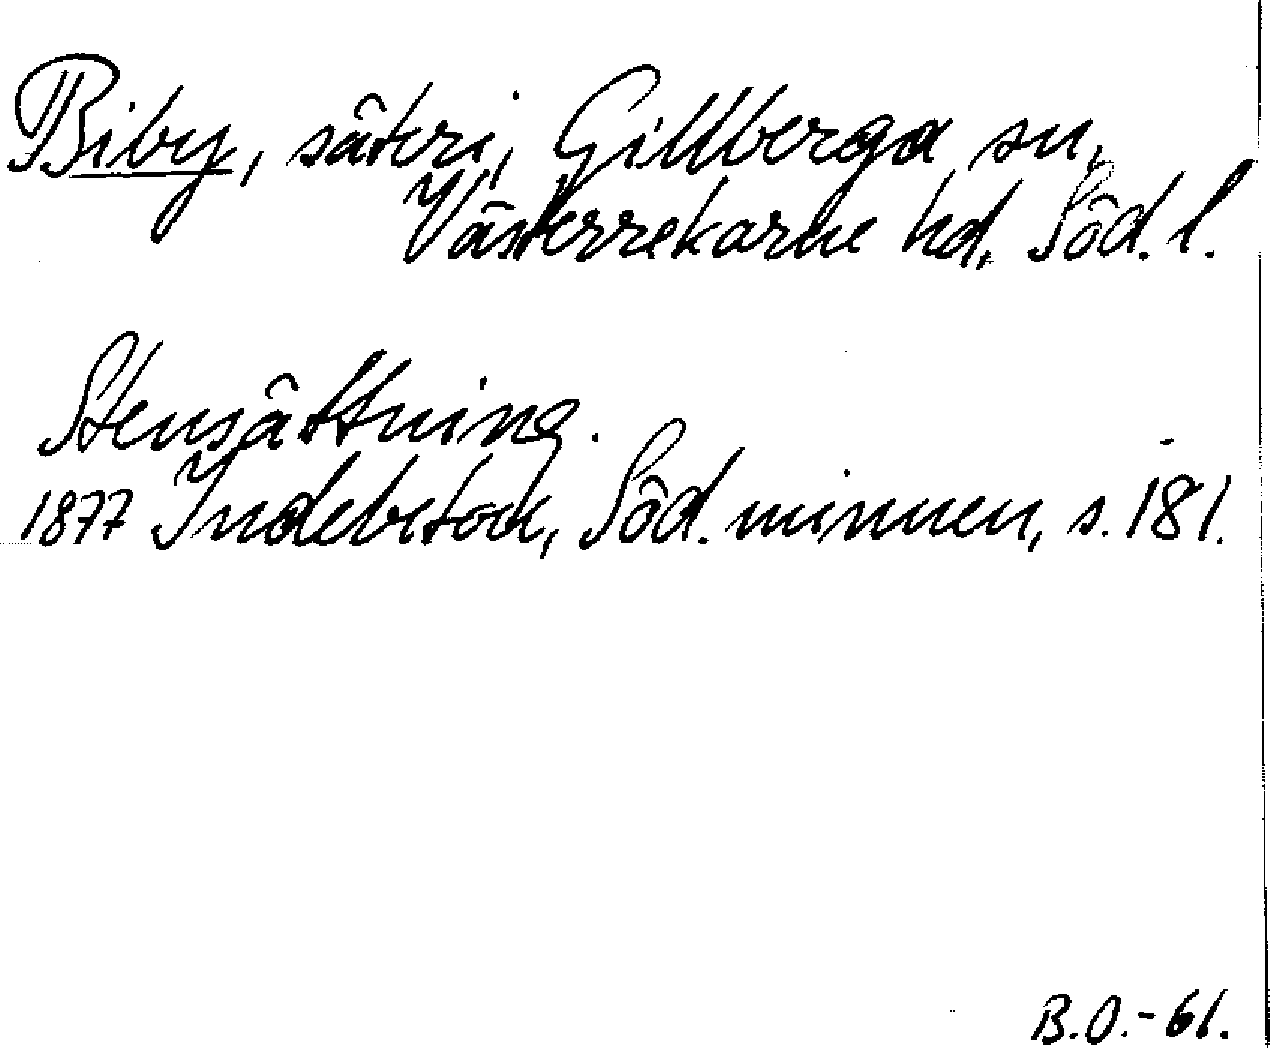 Biby, säteri, Gillberga sn,
Västerrekarne hd, Söd. l.
Stensättning.
1877 Indebetou, Söd. minnen, s. 181.
B.O.-61.